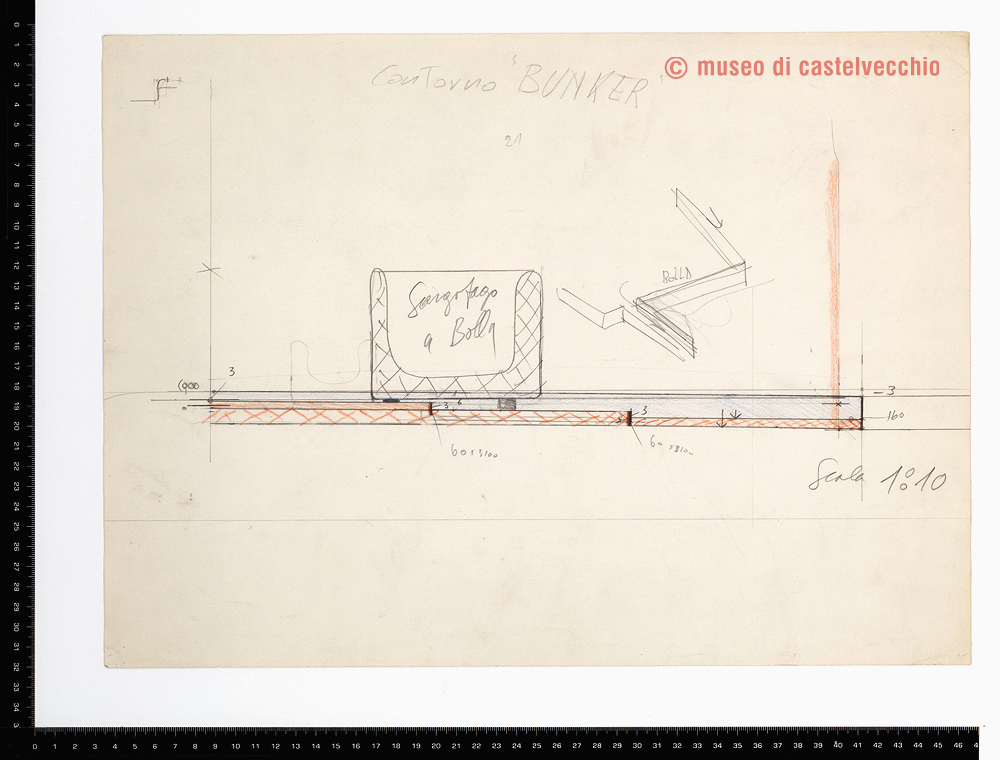 © museo di castelvecchio
Contorno "BUNKER"
21
BOLLA
Sargofago
a Bolla
3
3
3 6
3
160
60
60
Scala 1:10
0 1 2 3 4 5 6 7 8 9 10 11 12 13 14 15 16 17 18 19 20 21 22 23 24 25 26 27 28 29 30 31 32 33 34
0 1 2 3 4 5 6 7 8 9 10 11 12 13 14 15 16 17 18 19 20 21 22 23 24 25 26 27 28 29 30 31 32 33 34 35 36 37 38 39 40 41 42 43 44 45 46